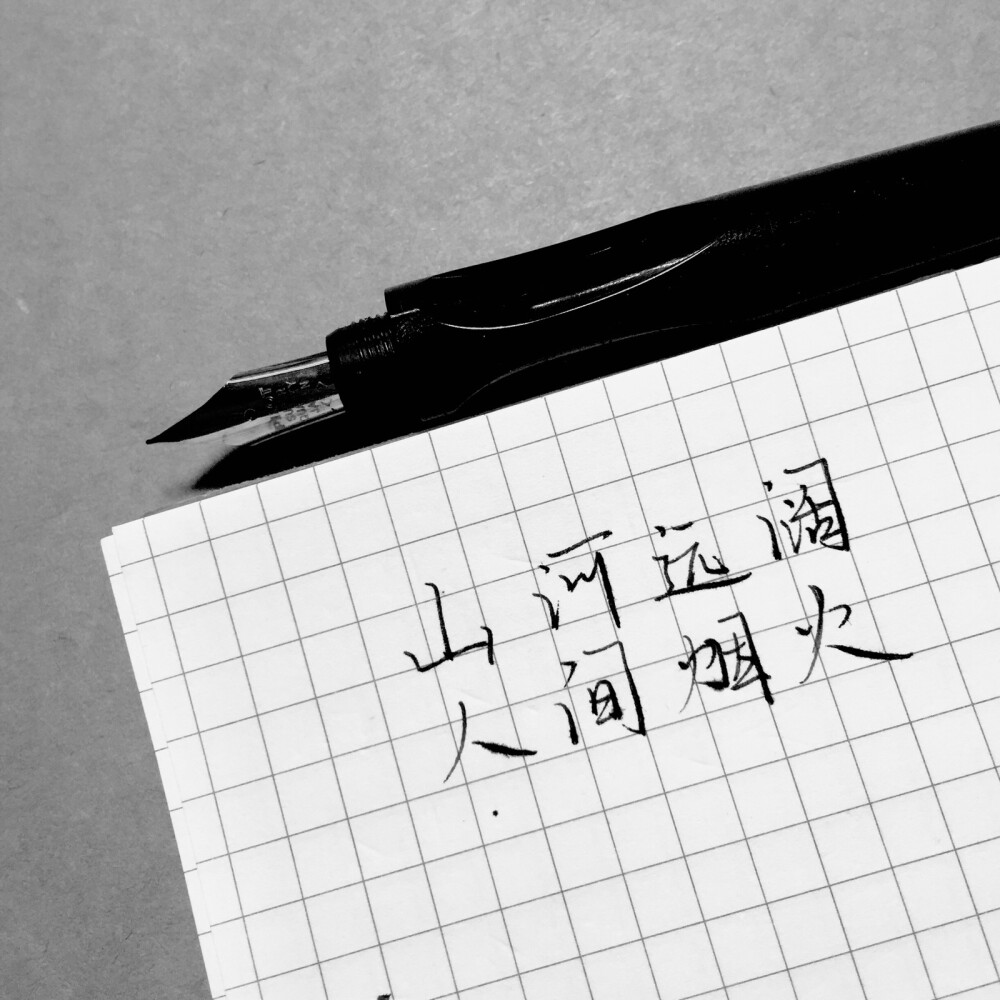 山河远阔
人间烟火